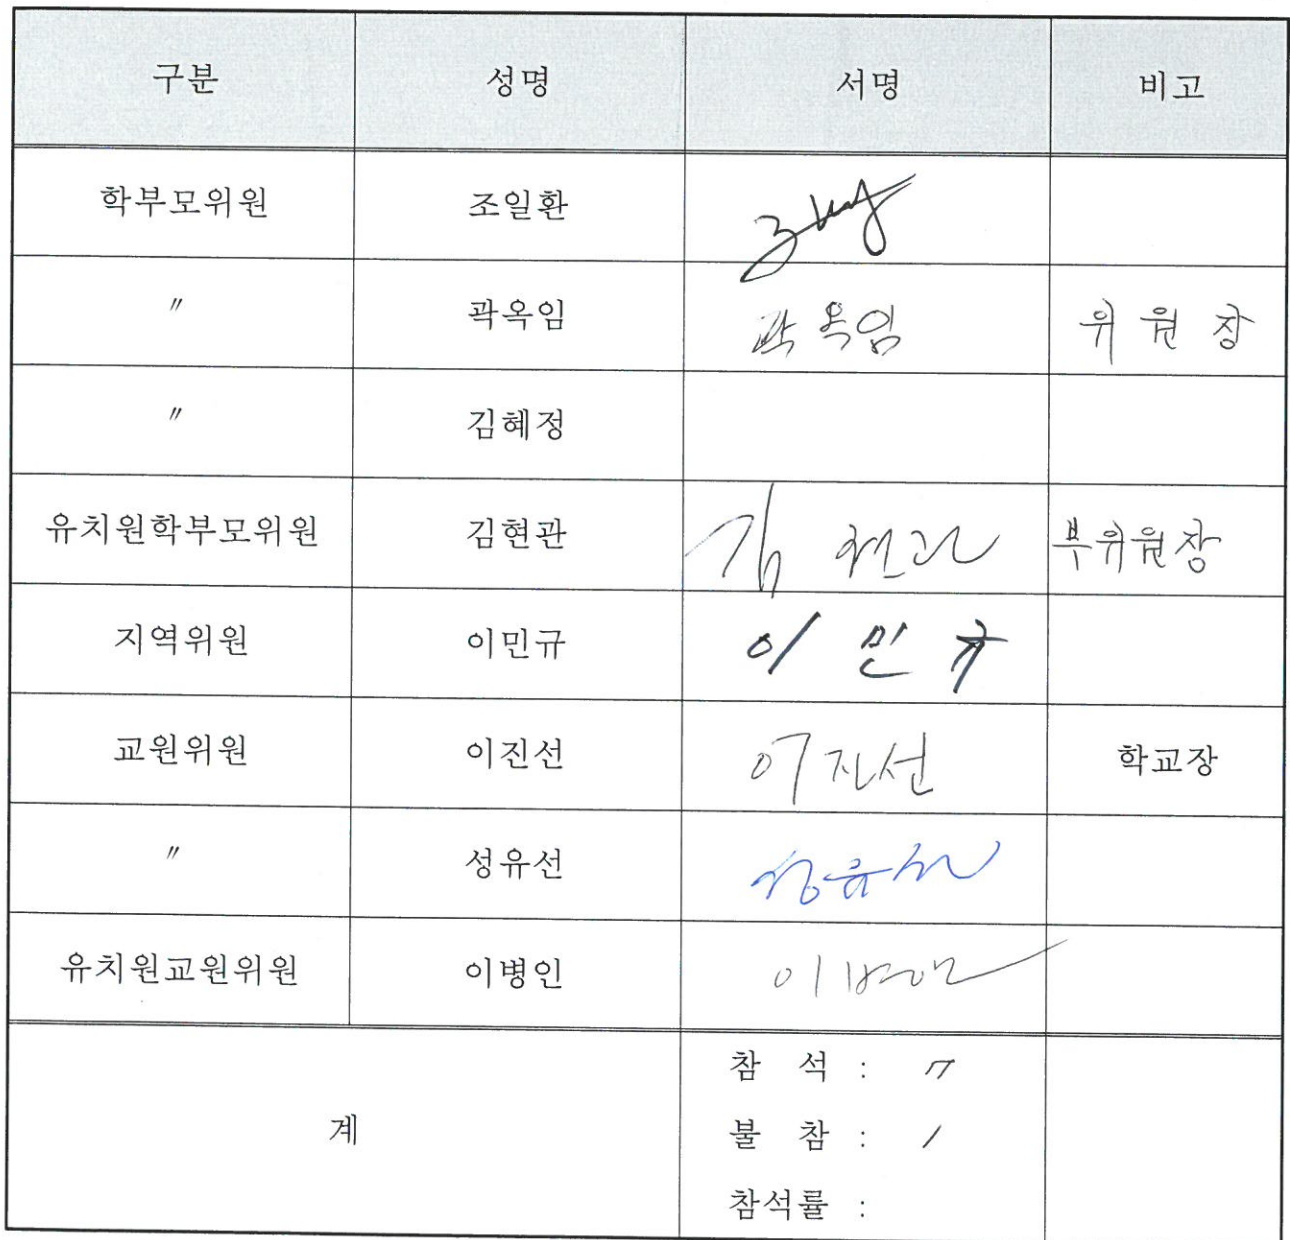 구분 성명 서명 비고
학부모위원 조일환
〃 곽옥임 곽옥임 위원장
〃 김혜정
유치원학부모위원 김현관 김현관 부위원장
지역위원 이민규 이민규
교원위원 이진선 이진선 학교장
〃 성유선 성유선
유치원교원위원 이병인 이병인
참 석 : 7
계 불 참 : 1
참석률 :